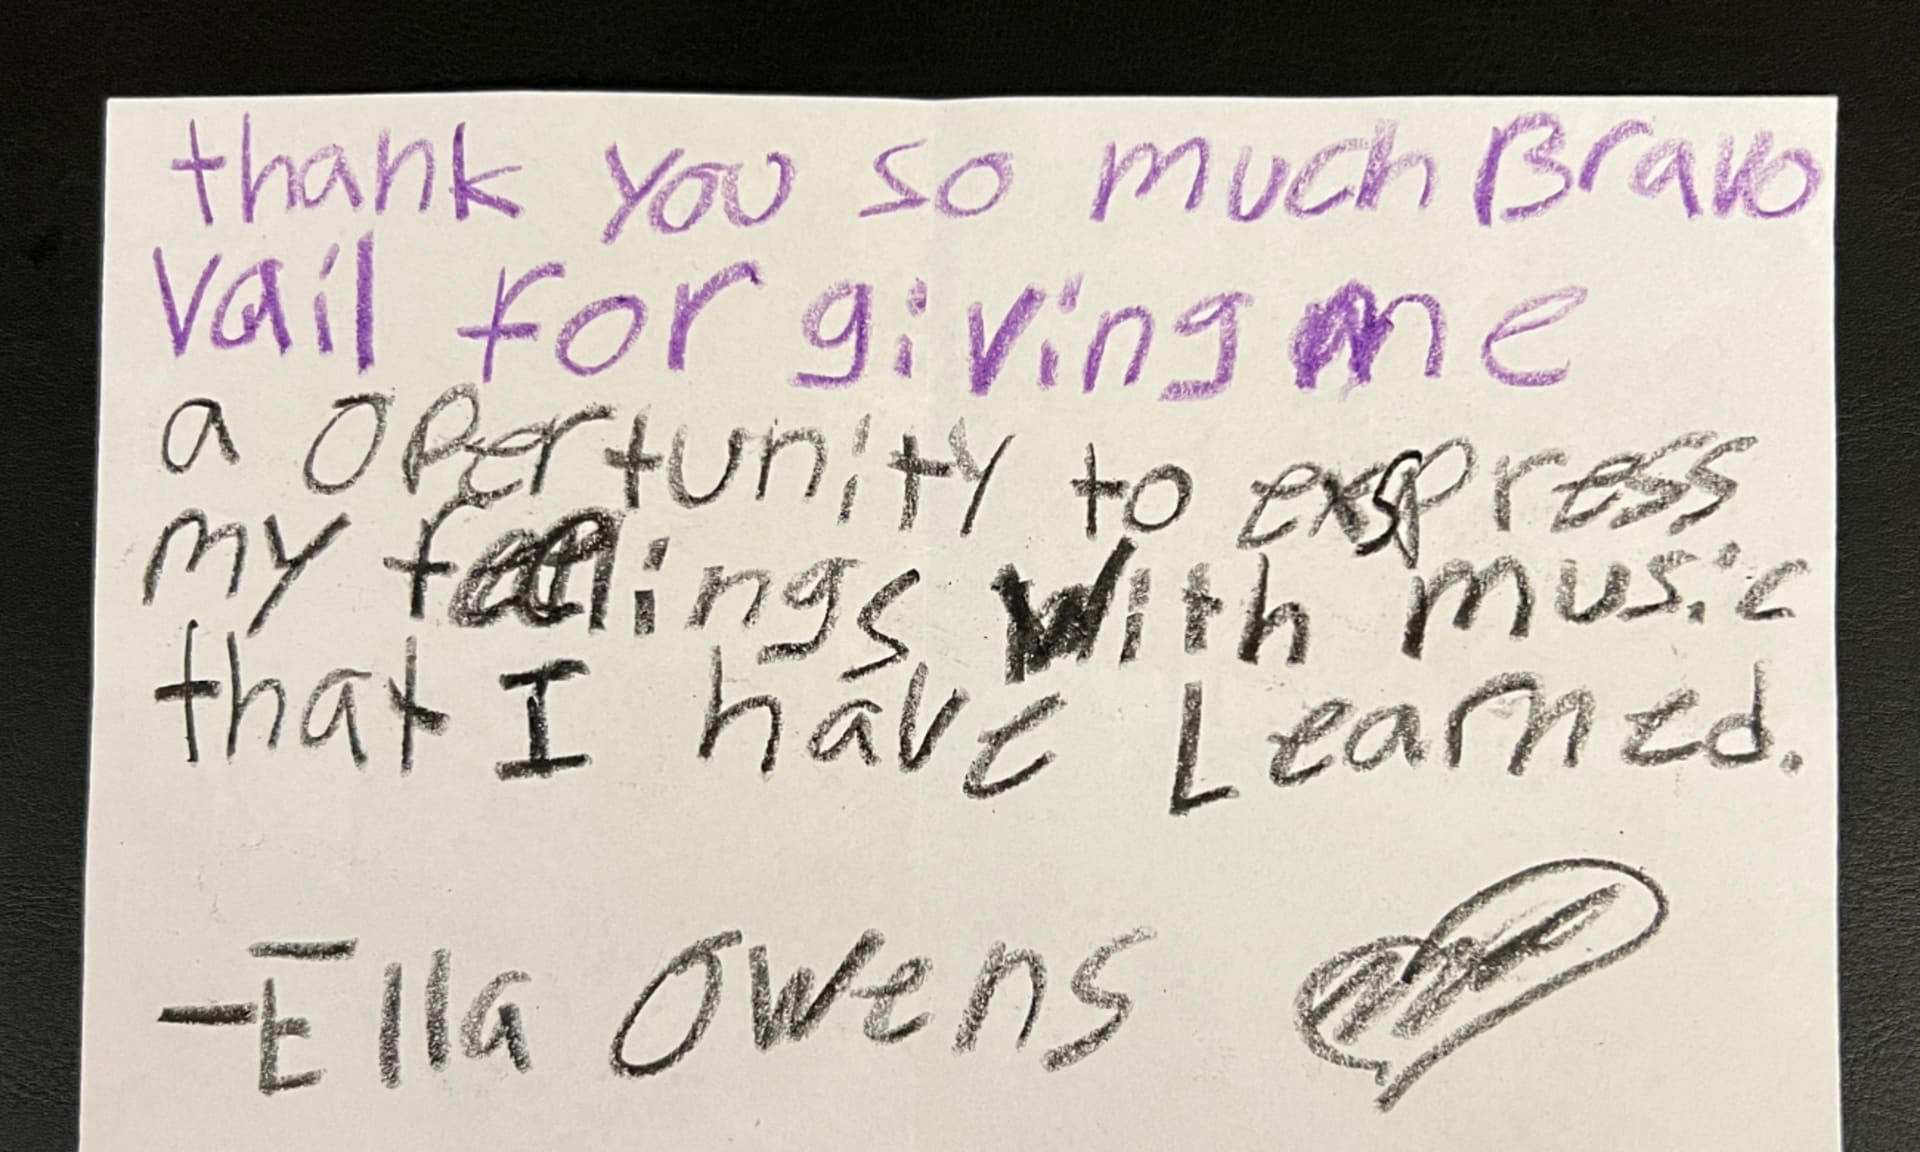 thank you so much Bravo
Vail for giving me
a opertunity to exspress
my feelings with music
that I have Learned.
-Ella Owens